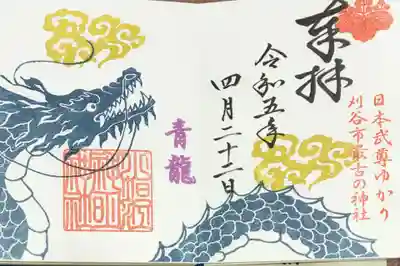 日本武尊ゆかり
刈谷市最古の神社
奉拝
令和五年
四月二十二日
青龍